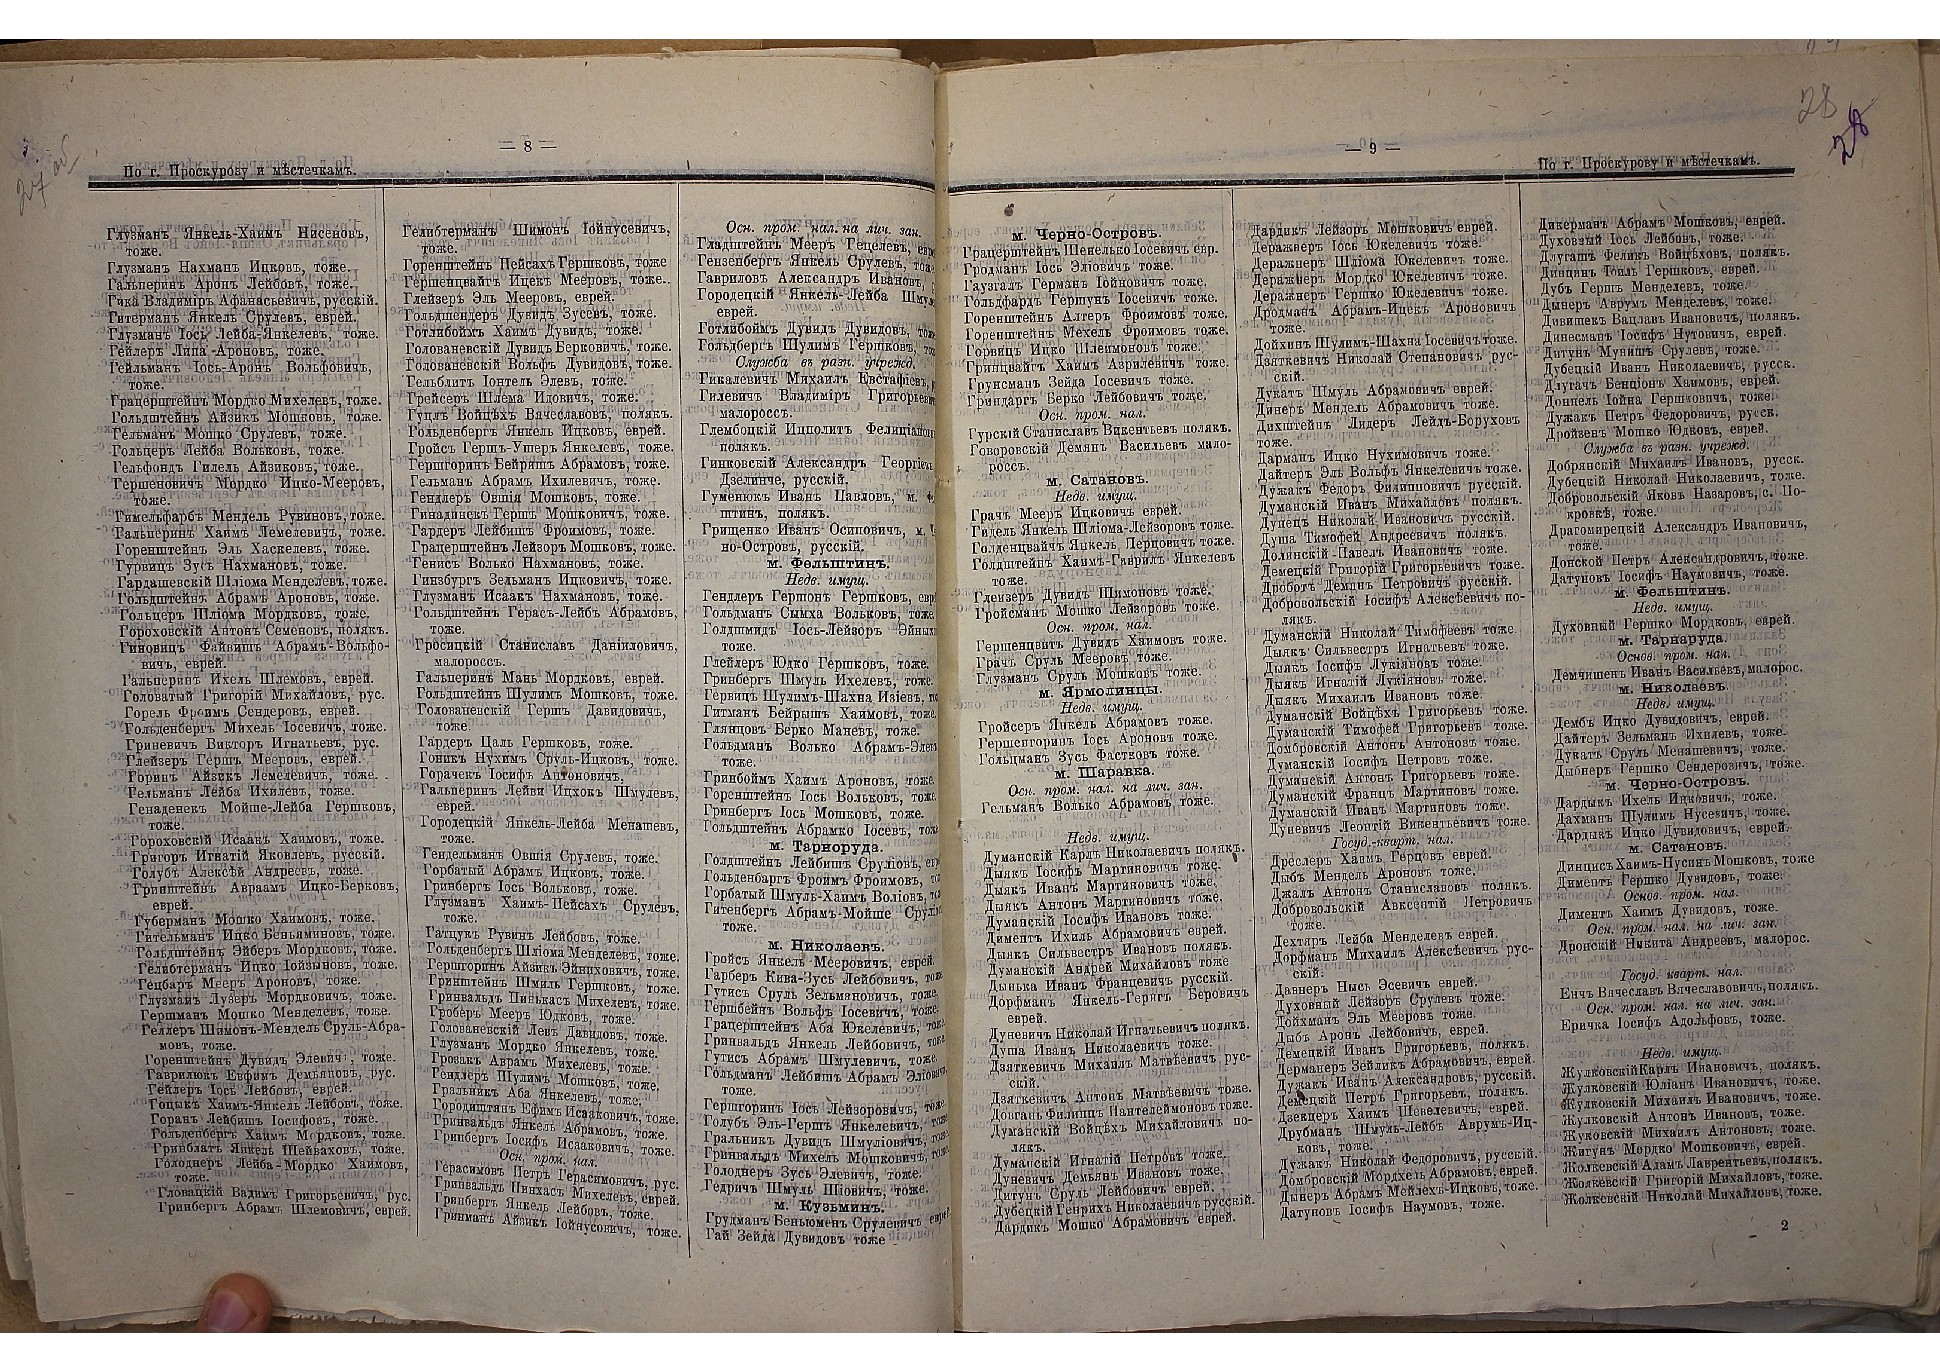 27 об
— 8 —
По г. Проскурову и мѣстечкамъ.
Глузманъ Янкель-Хаимъ Нисеновъ,
тоже.
Глузманъ Нахманъ Ицковъ, тоже.
Гальперинъ Аронъ Лейбовъ, тоже.
Гчка Владиміръ Афанасьевичъ, русскій.
Гитерманъ Янкель Срулевъ, еврей.
Глузманъ Іось Лейба-Янкелевъ, тоже.
Гейлеръ Липа-Ароновъ, тоже.
Гейльманъ Іось-Аронъ Вольфовичъ,
тоже.
Грацерштейнъ Мордко Михелевъ, тоже.
Гольдштейнъ Айзикъ Мошковъ, тоже.
Гельманъ Мошко Срулевъ, тоже.
Гольцеръ Лейба Вольковъ, тоже.
Гельфондъ Гилель Айзиковъ, тоже.
Гершеновичъ Мордко Ицко-Мееровъ,
тоже.
Гимельфарбъ Мендель Рувиновъ, тоже.
Гальперинъ Хаимъ Лемелевичъ, тоже.
Горенштейнъ Эль Хаскелевъ, тоже.
Гурвицъ Зусь Нахмановъ, тоже.
Гардашевскій Шліома Менделевъ, тоже.
Гольдштейнъ Абрамъ Ароновъ, тоже.
Гольцеръ Шліома Мордковъ, тоже.
Гороховскій Антонъ Семеновъ, полякъ.
Гиновицъ Файвишъ Абрамъ-Вольфо-
вичъ, еврей.
Гальперинъ Ихель Шлемовъ, еврей.
Головатый Григорій Михайловъ, рус.
Горель Фроимъ Сендеровъ, еврей.
Гольденбергъ Михель Іосевичъ, тоже.
Гриневичъ Викторъ Игнатьевъ, рус.
Глейзеръ Гершъ Мееровъ, еврей.
Горинъ Айзикъ Лемелевичъ, тоже.
Гельманъ Лейба Ихилевъ, тоже.
Генаденекъ Мойше-Лейба Гершковъ,
тоже.
Гороховскій Исаакъ Хаимовъ, тоже.
Григоръ Игнатій Яковлевъ, русскій.
Голубъ Алексѣй Андреевъ, тоже.
Гринштейнъ Авраамъ Ицко-Берковъ,
еврей.
Губерманъ Мошко Хаимовъ, тоже.
Гительманъ Ицко Беньяминовъ, тоже.
Гольдштейнъ Эйберъ Мордковъ, тоже.
Гелибтерманъ Ицко Іойвыновъ, тоже.
Гецбаръ Мееръ Ароновъ, тоже.
Глузманъ Лузеръ Мордковичъ, тоже.
Гершманъ Мошко Менделевъ, тоже.
Геллеръ Шимонъ-Мендель Сруль-Абра-
мовъ, тоже.
Горенштейнъ Дувидъ Элевичъ, тоже.
Гаврилюкъ Евфимъ Демьяновъ, рус.
Гейлеръ Іось Лейбовъ, еврей.
Гоцыкъ Хаимъ-Янкель Лейбовъ, тоже.
Горанъ Лейбишъ Іосифовъ, тоже.
Гольденбергъ Хаимъ Мордковъ, тоже.
Гринблатъ Янкель Шейваховъ, тоже.
Голоднеръ Лейба-Мордко Хаимовъ,
тоже.
Гловацкій Вадимъ Григорьевичъ, рус.
Гринбергъ Абрамъ Шлемовичъ, еврей.
Гелибтерманъ Шимонъ Іойнусевичъ,
тоже.
Горенштейнъ Пейсахъ Гершковъ, тоже
Гершенцвайгъ Ицекъ Мееровъ, тоже.
Глейзеръ Эль Мееровъ, еврей.
Гольдшендеръ Дувидъ Зусевъ, тоже.
Готлибоймъ Хаимъ Дувидъ, тоже.
Голованевскій Дувидъ Берковичъ, тоже.
Голованевскій Вольфъ Дувидовъ, тоже.
Гельблитъ Іонтель Элевъ, тоже.
Грейсеръ Шлема Идовичъ, тоже.
Гуцлъ Войцѣхъ Вячеславовъ, полякъ.
Гольденбергъ Янкель Ицковъ, еврей.
Гройсъ Гершъ-Ушеръ Янкелевъ, тоже.
Гершгоринъ Бейряшъ Абрамовъ, тоже.
Гельманъ Абрамъ Ихилевичъ, тоже.
Гендлеръ Овшія Мошковъ, тоже.
Гинадинекъ Гершъ Мошковичъ, тоже.
Гардеръ Лейбишъ Фроимовъ, тоже.
Грацерштейнъ Лейзоръ Мошковъ, тоже.
Генисъ Волько Нахмановъ, тоже.
Гинзбургъ Зельманъ Ицковичъ, тоже.
Глузманъ Исаакъ Нахмановъ, тоже.
Гольдштейнъ Герасъ-Лейбъ Абрамовъ,
тоже.
Гросицкій Станиславъ Даніиловичъ,
малороссъ.
Гальперинъ Мань Мордковъ, еврей.
Гольдштейнъ Шулимъ Мошковъ, тоже.
Голованевскій Гершъ Давидовичъ,
тоже.
Гардеръ Цаль Гершковъ, тоже.
Гоникъ Нухимъ Сруль-Ицковъ, тоже.
Горачекъ Іосифъ Антоновичъ.
Гальперинъ Лейви Ицхокъ Шмулевъ,
еврей.
Городецкій Янкель-Лейба Менашевъ,
тоже.
Гендельманъ Овшія Срулевъ, тоже.
Горбатый Абрамъ Ицковъ, тоже.
Гринбергъ Іось Вольковъ, тоже.
Глузманъ Хаимъ-Пейсахъ Срулевъ,
тоже.
Гатцукъ Рувинъ Лейбовъ, тоже.
Гольденбергъ Шліома Менделевъ, тоже.
Гершгоринъ Айзикъ Эйниховичъ, тоже.
Гринштейнъ Шмиль Гершковъ, тоже.
Гринвальдъ Пинькасъ Михелевъ, тоже.
Гроберъ Мееръ Юдковъ, тоже.
Голованевскій Левъ Давидовъ, тоже.
Глузманъ Мордко Янкелевъ, тоже.
Грозакъ Аврамъ Михелевъ, тоже.
Гендлеръ Шулимъ Мошковъ, тоже.
Гральникъ Аба Янкелевъ, тоже.
Городиштянъ Ефимъ Исааковичъ, тоже.
Гринвальдъ Янкель Абрамовъ, тоже.
Гринбергъ Іосифъ Исааковичъ, тоже.
Осн. пром. нал.
Герасимовъ Петръ Герасимовичъ, рус.
Гринвальдъ Пинхасъ Михелевъ, еврей.
Гринбергъ Янкель Лейбовъ, тоже.
Гринманъ Айзикъ Іойнусовичъ, тоже.
Осн. пром. нал. на лич. зан.
Гладштейнъ Мееръ Гецелевъ,
Гензенбергъ Янкель Срулевъ,
Гавриловъ Александръ Ивановъ,
Городецкій Янкель-Лейба
еврей.
Готлибоймъ Дувидъ Дувидовъ,
Гольдбергъ Шулимъ Гершковъ,
Служба въ разн. учрежд.
Гикалевичъ Михаилъ Евстафіевъ,
Гилевичъ Владиміръ
малороссъ.
Глембоцкій Ипполитъ
полякъ.
Гинковскій Александръ
Дзелинче, русскій.
Гуменюкъ Иванъ Павловъ, м.
штинъ, полякъ.
Грищенко Иванъ Осиповичъ, м.
но-Островъ, русскій.
м. Фельштинъ.
Недв. имущ.
Гендлеръ Гершонъ Гершковъ,
Гольдманъ Сымха Вольковъ, тоже.
Голдшмидъ Іось-Лейзоръ
тоже.
Глейлеръ Юдко Гершковъ, тоже.
Гринбергъ Шмуль Ихелевъ, тоже.
Гервицъ Шулимъ-Шахна Изіевъ,
Гитманъ Бейрышъ Хаимовъ, тоже.
Глянцовъ Берко Маневъ, тоже.
Гольдманъ Волько
тоже.
Гринбоймъ Хаимъ Ароновъ, тоже.
Горенштейнъ Іось Вольковъ, тоже.
Гринбергъ Іось Мошковъ, тоже.
Гольдштейнъ Абрамко Іосевъ,
м. Тарноруда.
Голдштейнъ Лейбишъ Сруліовъ,
Гольденбаргъ Фроимъ Фроимовъ,
Горбатый Шмуль-Хаимъ Воліовъ,
Гитенбергъ Абрамъ-Мойше
тоже.
м. Николаевъ.
Гройсъ Янкель-Мееровичъ, еврей.
Гарберъ Кива-Зусь Лейбовичъ,
Гутисъ Сруль Зельмановичъ, тоже.
Гершбейнъ Вольфъ Іосевичъ, тоже.
Грацерштейнъ Аба Юкелевичъ,
Гринвальдъ Янкель Лейбовичъ,
Гутисъ Абрамъ Шмулевичъ, тоже.
Гольдманъ Лейбишъ Абрамъ
тоже.
Гершгоринъ Іось Лейзоровичъ,
Голубъ Эль-Гершъ Янкелевичъ,
Гральникъ Дувидъ Шмуліовичъ,
Гринвальдъ Михелъ Мошковичъ,
Голоднеръ Зусь Элевичъ, тоже.
Гедричъ Шмуль Шіовичъ, тоже.
м. Кузьминъ.
Грудманъ Беньюменъ Срулевичъ
Гай Зейда Дувидовъ тоже
28
28
— 9 —
По г. Проскурову и мѣстечкамъ.
м. Черно-Островъ.
Грацерштейнъ Шенелько Іосевичъ евр.
Гродманъ Іось Эліовичъ тоже.
Гаузгалъ Германъ Іойновичъ тоже.
Гольдфардъ Гершунъ Іосевичъ тоже.
Горенштейнъ Алтеръ Фроимовъ тоже.
Горенштейнъ Мехель Фроимовъ тоже.
Горвицъ Ицко Шлеимоновъ тоже.
Гринцвайгъ Хаимъ Азрилевичъ тоже.
Грунсманъ Зейда Іосевичъ тоже.
Гриндаргъ Берко Лейбовичъ тоже.
Осн. пром. нал.
Гурскій Станиславъ Викентьевъ полякъ.
Говоровскій Демянъ Васильевъ мало-
россъ.
м. Сатановъ.
Недв. имущ.
Грачъ Мееръ Ицковичъ еврей.
Гидель Янкель Шліома-Лейзоровъ тоже.
Голденцвайчъ Янкель Перцовичъ тоже.
Голдштейнъ Хаимъ-Гаврилъ Янкелевъ
тоже.
Глейзеръ Дувидъ Шимоновъ тоже.
Гройсманъ Мошко Лейзоровъ тоже.
Осн. пром. нал.
Гершенцвитъ Дувидъ Хаимовъ тоже.
Грачъ Сруль Мееровъ тоже.
Глузманъ Сруль Мошковъ тоже.
м. Ярмолинцы.
Недв. имущ.
Гройсеръ Янкель Абрамовъ тоже.
Гершенгоринъ Іось Ароновъ тоже.
Гольцманъ Зусь Фастзовъ тоже.
м. Шаравка.
Осн. пром. нал. на лич. зан.
Гельманъ Волько Абрамовъ тоже.
Недв. имущ.
Думанскій Карлъ Николаевичъ полякъ.
Дыякъ Іосифъ Мартиновичъ тоже.
Дыякъ Иванъ Мартиновичъ тоже.
Дыякъ Антонъ Мартиновичъ тоже.
Думанскій Іосифъ Ивановъ тоже.
Диментъ Ихиль Абрамовичъ еврей.
Дыякъ Сильвестръ Ивановъ полякъ.
Думанскій Андрей Михайловъ тоже
Дынька Иванъ Францевичъ русскій.
Дорфманъ Янкель-Герягъ Беровичъ
еврей.
Дуневичъ Николай Игнатьевичъ полякъ.
Душа Иванъ Николаевичъ тоже.
Дзяткевичъ Михаилъ Матвѣевичъ рус-
скій.
Дзяткевичъ Антонъ Матвѣевичъ тоже.
Довгань Филиппъ Пантелеймоновъ тоже.
Думанскій Войцѣхъ Михайловичъ по-
лякъ.
Думанскій Игнатій Петровъ тоже.
Дуневичъ Демьянъ Ивановъ тоже.
Дитунъ Сруль Лейбовичъ еврей.
Дубецкій Генрихъ Николаевичъ русскій.
Дардикъ Мошко Абрамовичъ еврей.
Дардикъ Лейзоръ Мошковичъ еврей.
Деражнеръ Іось Юкелевичъ тоже.
Деражнеръ Шліома Юкелевичъ тоже.
Деражнеръ Мордко Юкелевичъ тоже.
Деражнеръ Гершко Юкелевичъ тоже.
Дродманъ Абрамъ-Ицекъ Ароновичъ
тоже.
Дойхинъ Шулимъ-Шахна Іосевичъ тоже.
Дзяткевичъ Николай Степановичъ рус-
скій.
Дукатъ Шмуль Абрамовичъ еврей.
Динеръ Мендель Абрамовичъ тоже.
Дихштейнъ Лидеръ Лейдъ-Боруховъ
тоже.
Дарманъ Ицко Нухимовичъ тоже.
Дайтеръ Эль Вольфъ Янкелевичъ тоже.
Дужакъ Федоръ Филипповичъ русскій.
Думанскій Иванъ Михайловъ полякъ.
Дунецъ Николай Ивановичъ русскій.
Душа Тимофей Андреевичъ полякъ.
Долянскій Павелъ Ивановичъ тоже.
Демецкій Григорій Григорьевичъ тоже.
Дроботъ Демянъ Петровичъ русскій.
Добровольскій Іосифъ Алексѣевичъ по-
лякъ.
Думанскій Николай Тимофеевъ тоже
Дыякъ Сильвестръ Игнатьевъ тоже.
Дыякъ Іосифъ Лукіяновъ тоже.
Дыякъ Игнатій Лукіяновъ тоже.
Дыякъ Михаилъ Ивановъ тоже.
Думанскій Войцѣхъ Григорьевъ тоже.
Думанскій Тимофей Григорьевъ тоже.
Домбровскій Антонъ Антоновъ тоже.
Думанскій Іосифъ Петровъ тоже.
Думанскій Антонъ Григорьевъ тоже.
Думанскій Францъ Мартиновъ тоже.
Думанскій Иванъ Мартиновъ тоже.
Дуневичъ Леонтій Викентьевичъ тоже.
Госуд.-кварт. нал.
Дреслеръ Хаимъ Герцовъ еврей.
Дыбъ Мендель Ароновъ тоже.
Джалъ Антонъ Станиславовъ полякъ.
Добровольскій Авксентій Петровичъ
тоже.
Дехтяръ Лейба Менделевъ еврей.
Дорфманъ Михаилъ Алексѣевичъ рус-
скій.
Давнеръ Нысь Эсевичъ еврей.
Духовный Лейзоръ Срулевъ тоже.
Дойхманъ Эль Мееровъ тоже.
Дыбъ Аронъ Лейбовичъ, еврей.
Демецкій Иванъ Григорьевъ, полякъ.
Дерманеръ Зейликъ Абрамовичъ, еврей.
Дужакъ Иванъ Александровъ, русскій.
Демецкій Петръ Григорьевъ, полякъ.
Двекцеръ Хаимъ Шевелевичъ, еврей.
Друбманъ Шмуль-Лейбъ Аврумъ-Иц-
ковъ, тоже.
Дужакъ Николай Федоровичъ, русскій.
Домбровскій Мордхель Абрамовъ, еврей.
Дынеръ Абрамъ Мейлехъ-Ицковъ, тоже.
Датуновъ Іосифъ Наумовъ, тоже.
Дикерманъ Абрамъ Мошковъ, еврей.
Духовный Іось Лейбовъ, тоже.
Длугашъ Феликъ Войцѣховъ, полякъ.
Динцинъ Іоиль Гершковъ, еврей.
Дубъ Гершъ Менделевъ, тоже.
Дынеръ Аврумъ Менделевъ, тоже.
Дивишекъ Вацлавъ Ивановичъ, полякъ.
Динесманъ Іосифъ Нутовичъ, еврей.
Дитунъ Мунишъ Срулевъ, тоже.
Дубецкій Иванъ Николаевичъ, русск.
Длугачъ Бенціонъ Хаимовъ, еврей.
Доннель Іойна Гершковичъ, тоже.
Дужакъ Петръ Федоровичъ, русск.
Дройзенъ Мошко Юдковъ, еврей.
Служба въ разн. учрежд.
Добрянскій Михаилъ Ивановъ, русск.
Дубецкій Николай Николаевичъ, тоже.
Добровольскій Яковъ Назаровъ, с. По-
кровкѣ, тоже.
Драгомирецкій Александръ Ивановичъ,
тоже.
Донской Петръ Александровичъ, тоже.
Датуновъ Іосифъ Наумовичъ, тоже.
м. Фельштинъ.
Недв. имущ.
Духовный Гершко Мордковъ, еврей.
м. Тарнаруда.
Основ. пром. нал.
Демчишенъ Иванъ Васильевъ, малорос.
м. Николаевъ.
Недв. имущ.
Дембъ Ицко Дувидовичъ, еврей.
Дайтеръ Зельманъ Ихилевъ, тоже.
Дукатъ Сруль Менашевичъ, тоже.
Дыбнеръ Гершко Сендеровичъ, тоже.
м. Черно-Островъ.
Дардыкъ Ихель Ицковичъ, тоже.
Дахманъ Шулимъ Нусевичъ, тоже.
Дардыкъ Ицко Дувидовичъ, еврей.
м. Сатановъ.
Динцисъ Хаимъ-Нусинъ Мошковъ, тоже
Диментъ Гершко Дувидовъ, тоже.
Основ. пром. нал.
Диментъ Хаимъ Дувидовъ, тоже.
Осн. пром. нал. на лич. зан.
Дронскій Никита Андреевъ, малорос.
Госуд. кварт. нал.
Енчъ Вячеславъ Вячеславовичъ, полякъ.
Осн. пром. нал. на лич. зан.
Еричка Іосифъ Адольфовъ, тоже.
Недв. имущ.
Жулковскій Карлъ Ивановичъ, полякъ.
Жулковскій Юліанъ Ивановичъ, тоже.
Жулковскій Михаилъ Ивановичъ, тоже.
Жулковскій Антонъ Ивановъ, тоже.
Жуковскій Михаилъ Антоновъ, тоже.
Жигунъ Мордко Мошковичъ, еврей.
Жолкевскій Адамъ Лаврентьевъ, полякъ.
Жолкевскій Григорій Михайловъ, тоже.
Жолкевскій Николай Михайловъ, тоже.
2